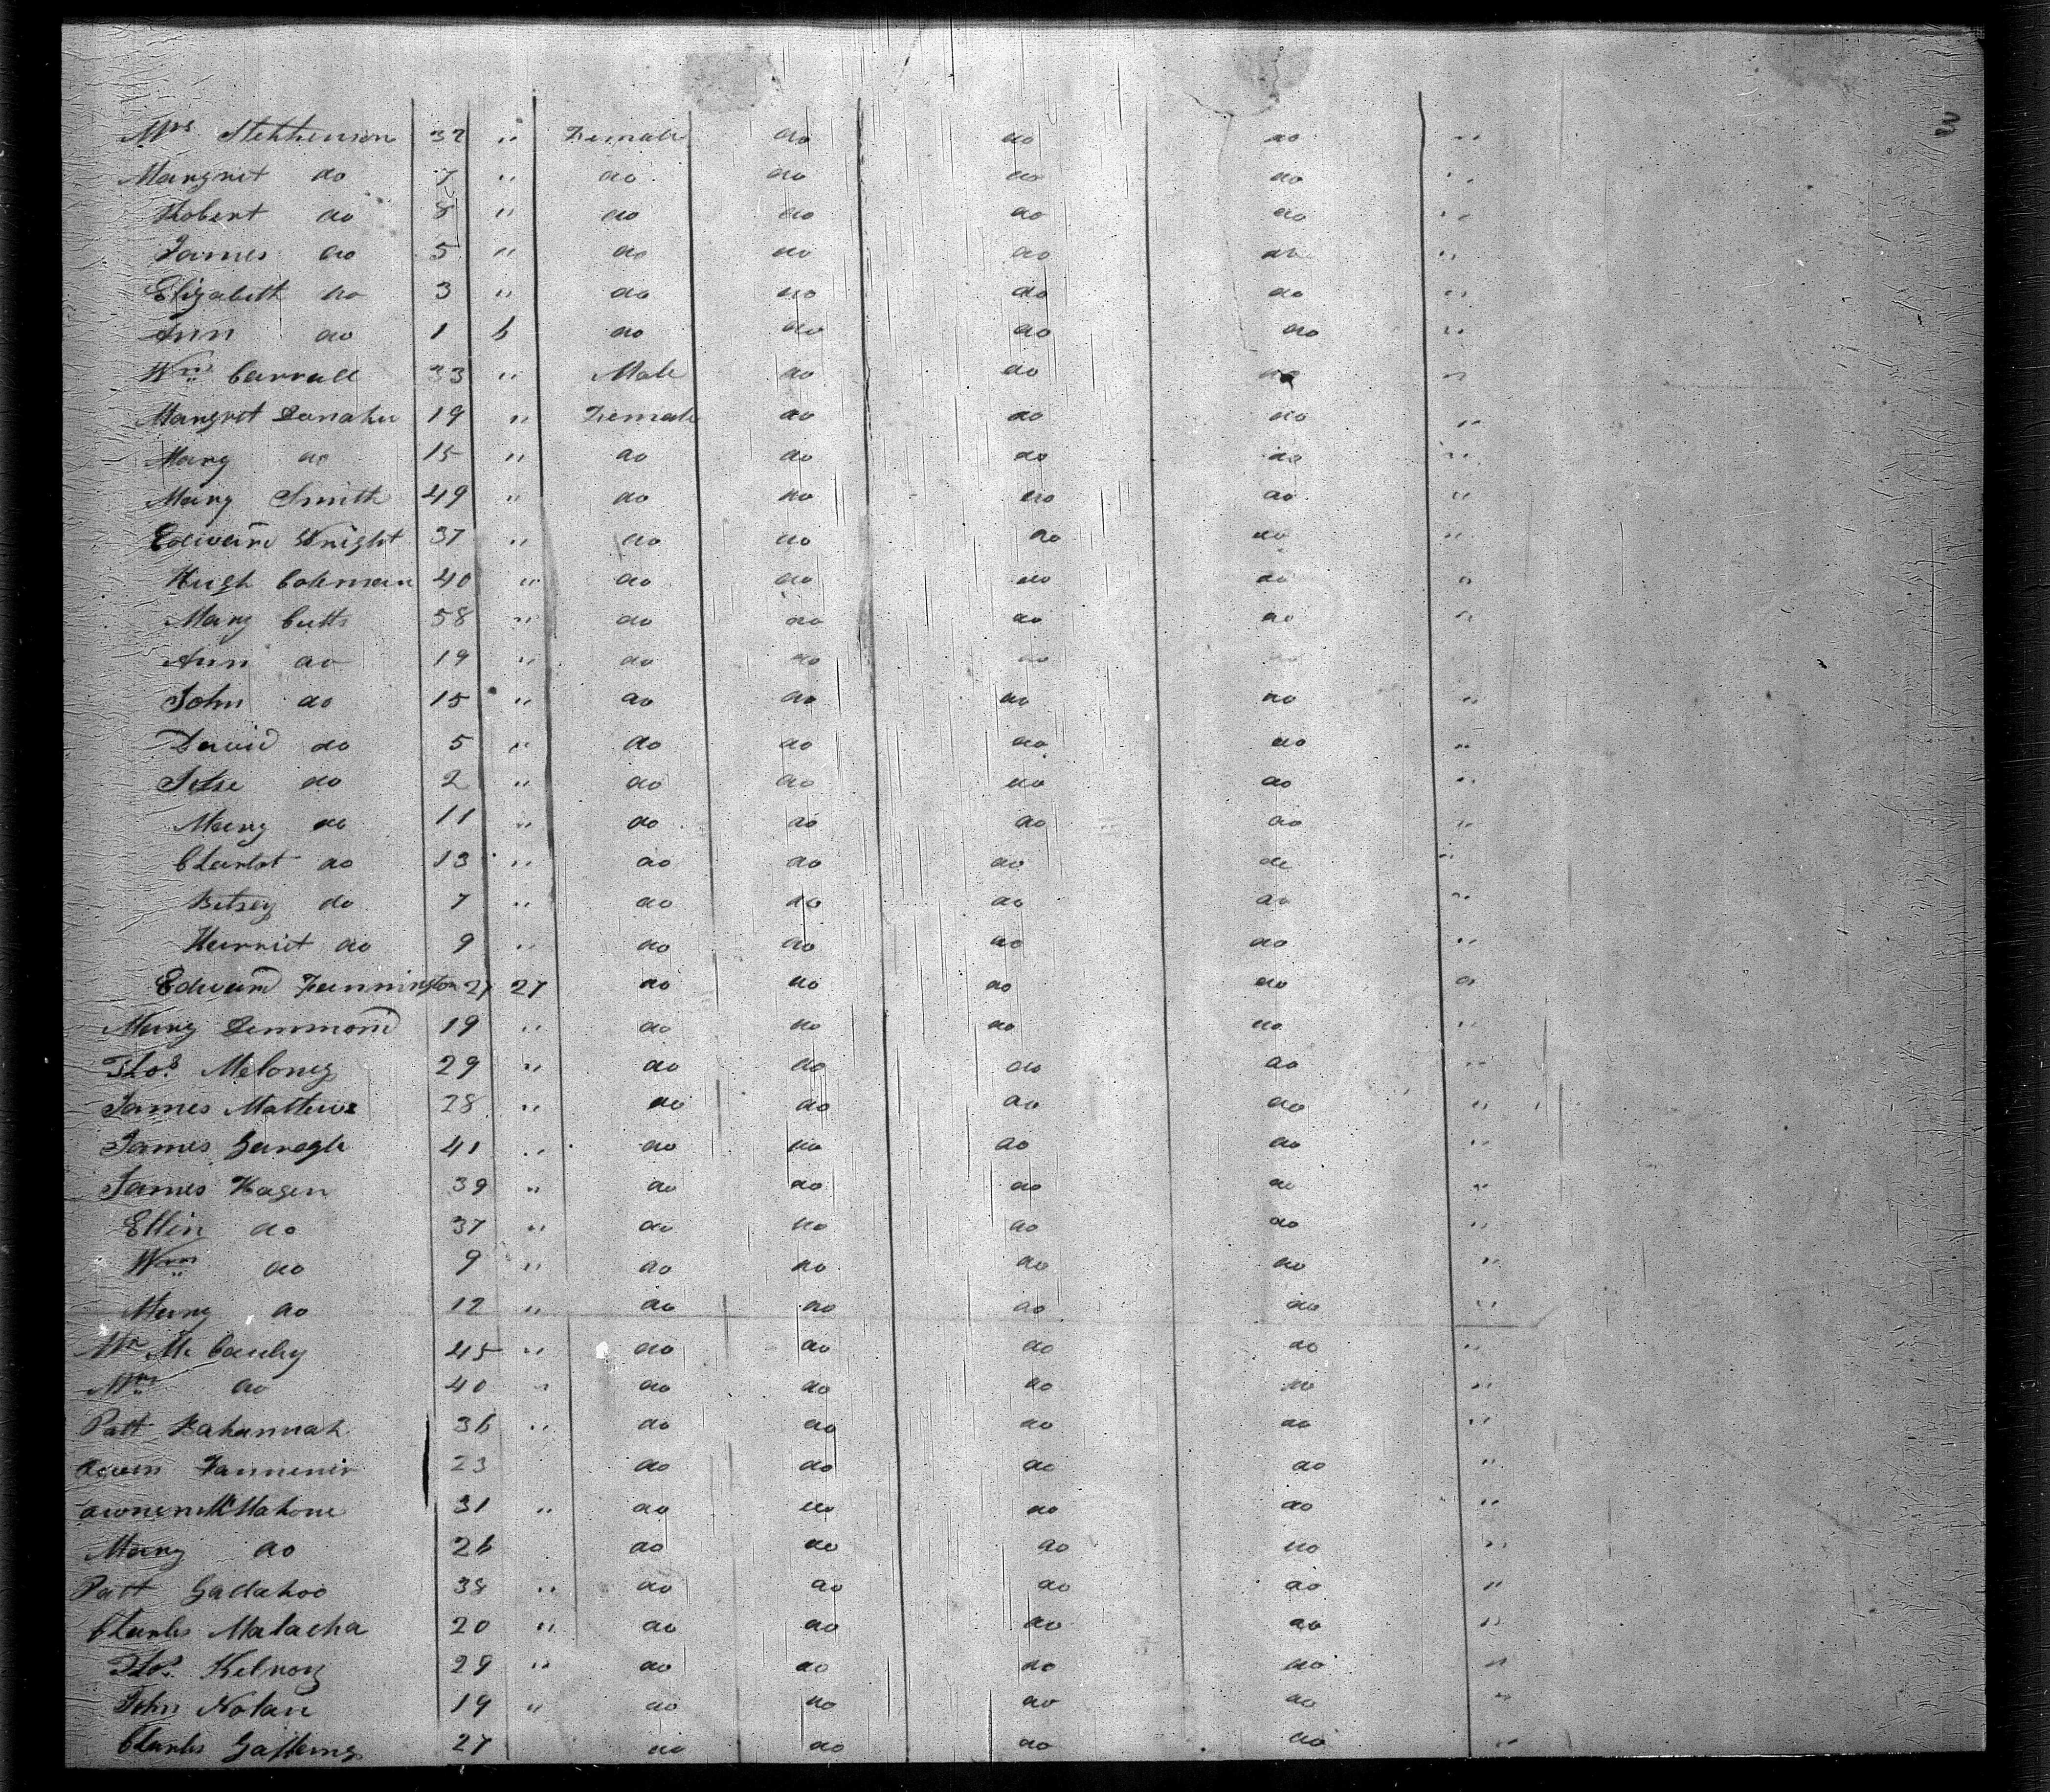 Mrs Stephenson 32 " Female do do do "
Margrit do 7 " do do do do "
Robert do 8 " do do do do "
James do 5 " do do do do "
Elizabeth do 3 " do do do do "
Ann do 1 6 do do do do "
Wm Carrall 33 " Male do do do "
Margret Donahu 19 " Female do do do "
Mary do 15 " do do do do "
Mary Smith 49 " do do do do "
Edward Wright 37 " do do do do "
Hugh Coleman 40 " do do do do "
Mary Cutts 58 " do do do do "
Ann do 19 " do do do do
John do 15 " do do do do "
David do 5 " do do do do "
do 2 " do do do do "
Mary do 11 " do do do do "
Charlot do 13 " do do do do "
Betsey do 7 " do do do do "
Harriet do 9 " do do do do "
Edward Fannington 27 27 do do do do
Mary Demmond 19 " do do do do "
Thos. Meloney 29 " do do do do "
James Mathews 28 " do do do do "
James 41 " do do do do "
James Hagen 39 " do do do do "
Ellin do 37 " do do do do "
Wm do 9 " do do do do "
Mary do 12 " do do do do "
Mr Mc 45 " do do do do "
Mrs do 40 " do do do do "
Patt 36 " do do do do "
23 do do do do "
McMahone 31 " do do do do "
Mary do 26 do do do do "
Patt Gallahoo 38 " do do do do "
Charles Malacha 20 " do do do do "
Thos. Kelroy 29 " do do do do "
John Nolan 19 " do do do do "
Charles 27 do do do do "